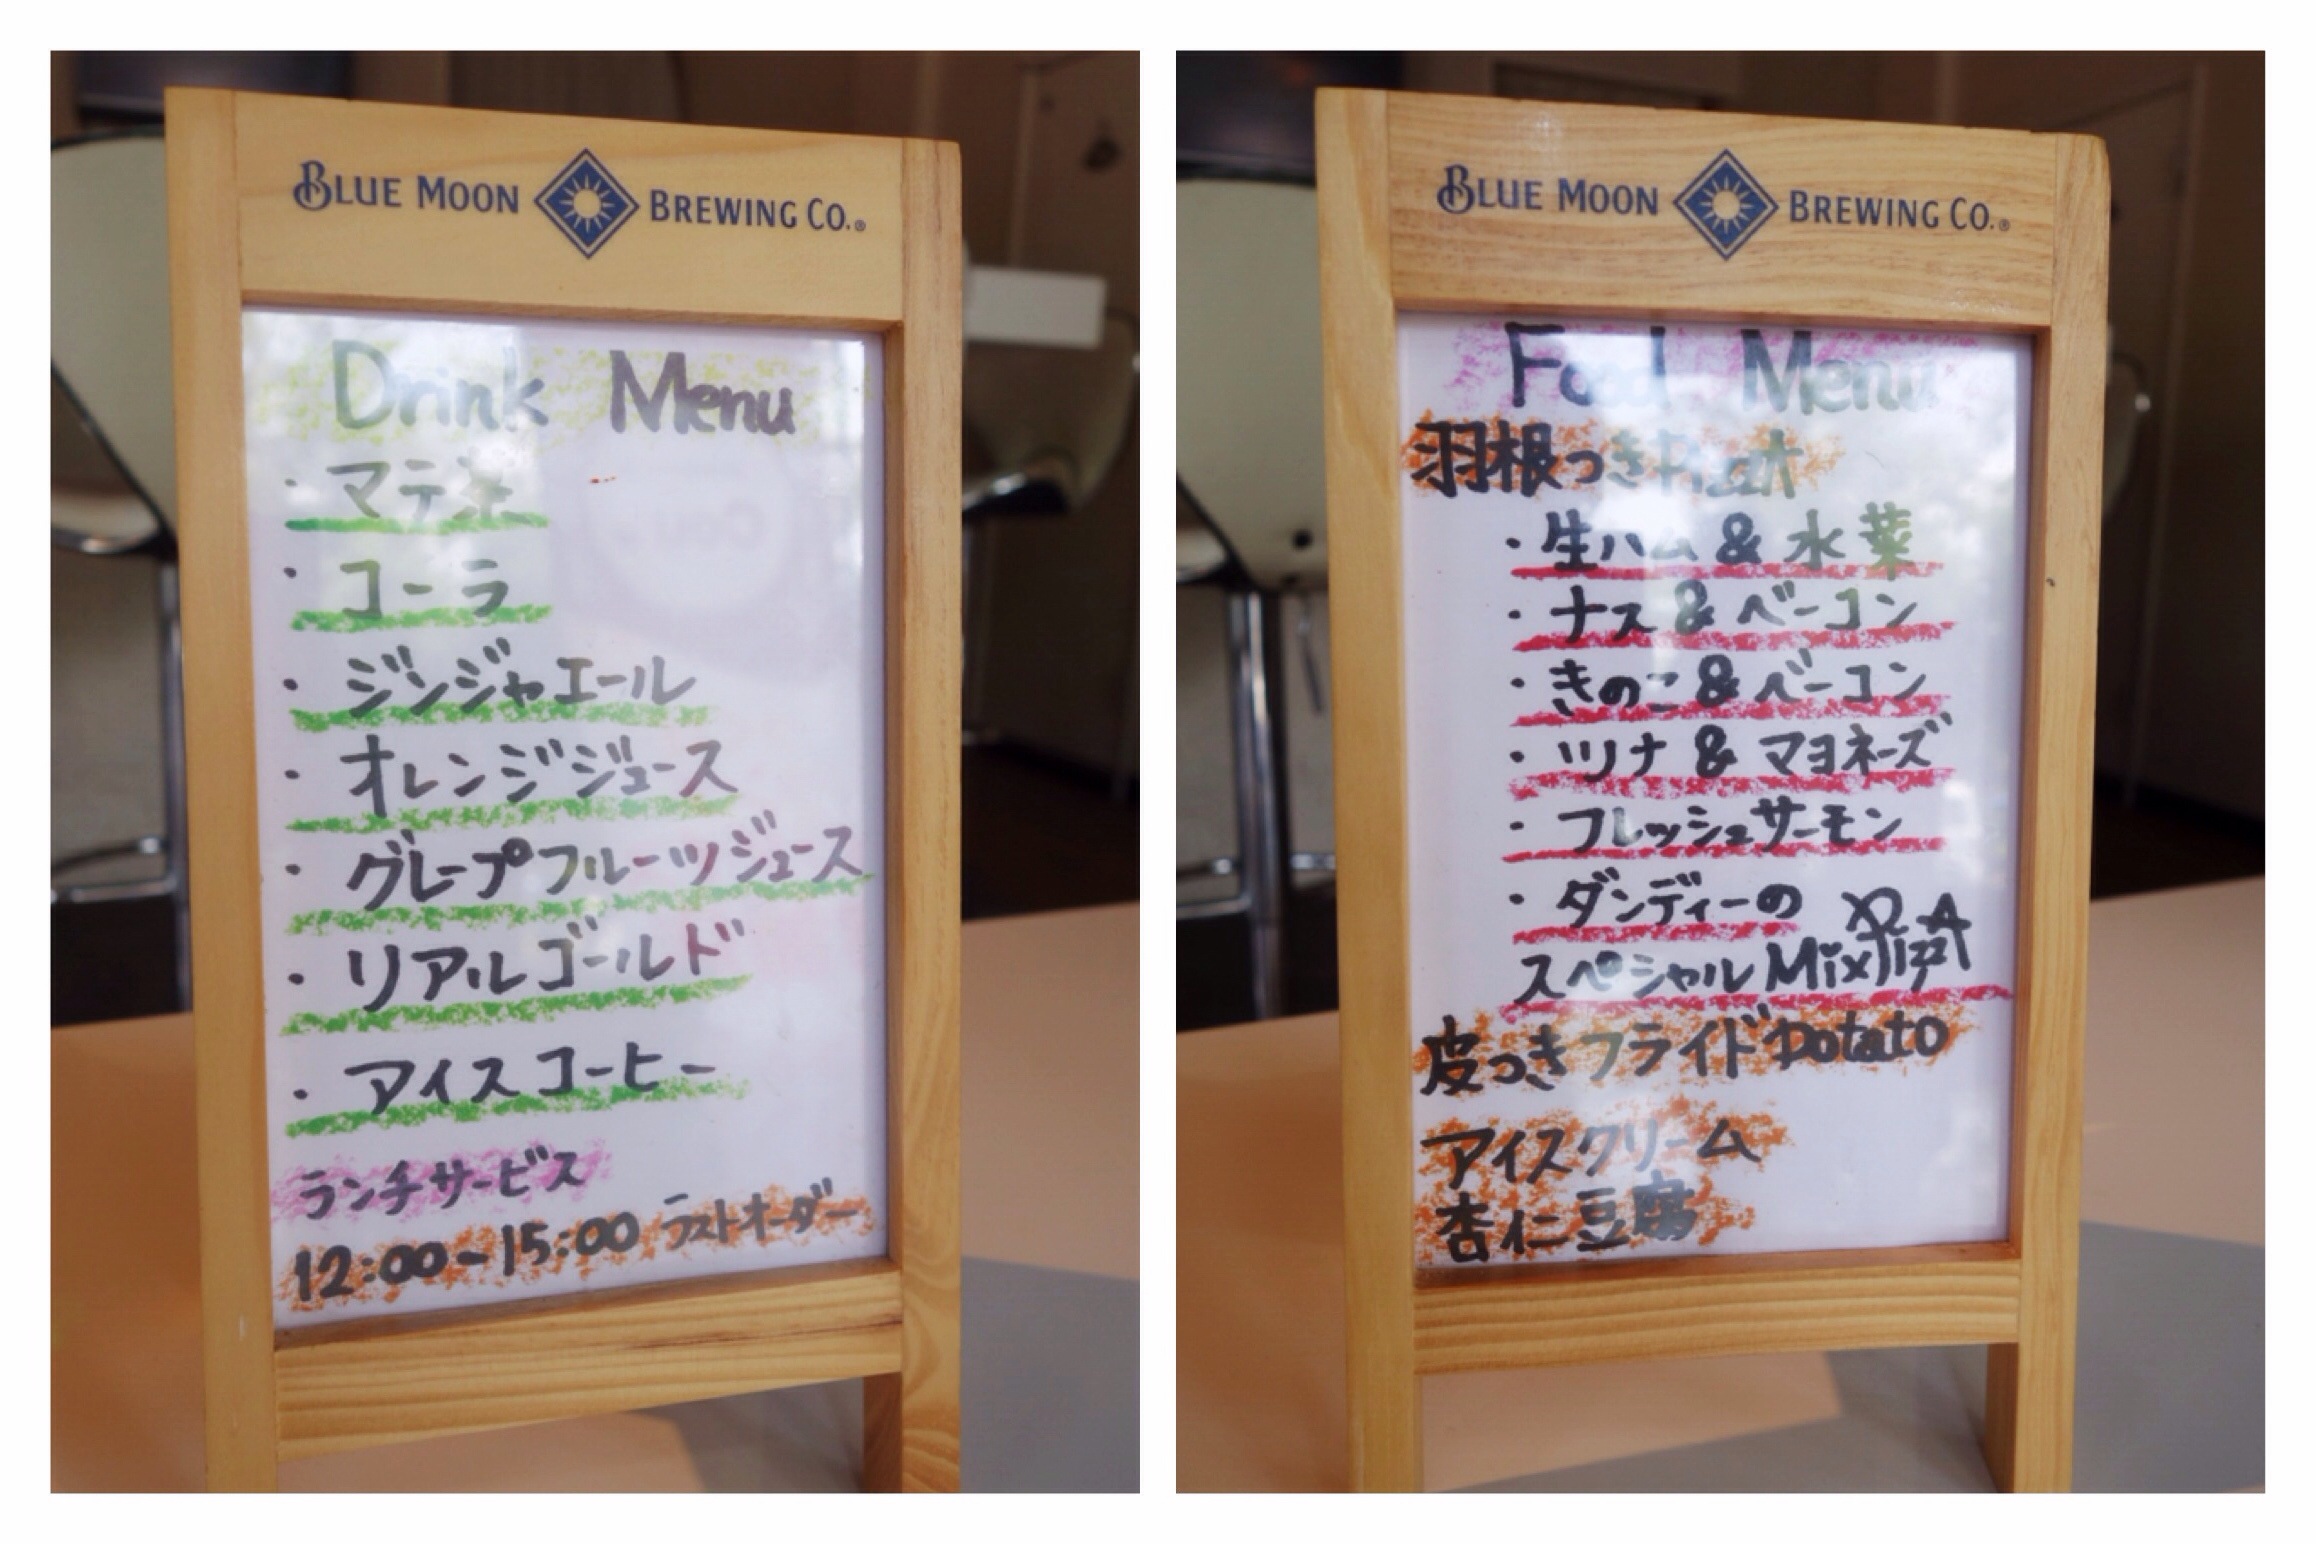 BLUE MOON BREWING CO.®
Drink Menu
・マテ茶
・コーラ
・ジンジャエール
・オレンジジュース
・グレープフルーツジュース
・リアルゴールド
・アイスコーヒー
ランチサービス
12:00~15:00 ラストオーダー
BLUE MOON BREWING CO.®
Food Menu
羽根つき
・生ハム&水菜
・ナス&ベーコン
・きのこ&ベーコン
・ツナ&マヨネーズ
・フレッシュサーモン
・ダンディーの
スペシャルMix
皮つきフライドPotato
アイスクリーム
杏仁豆腐